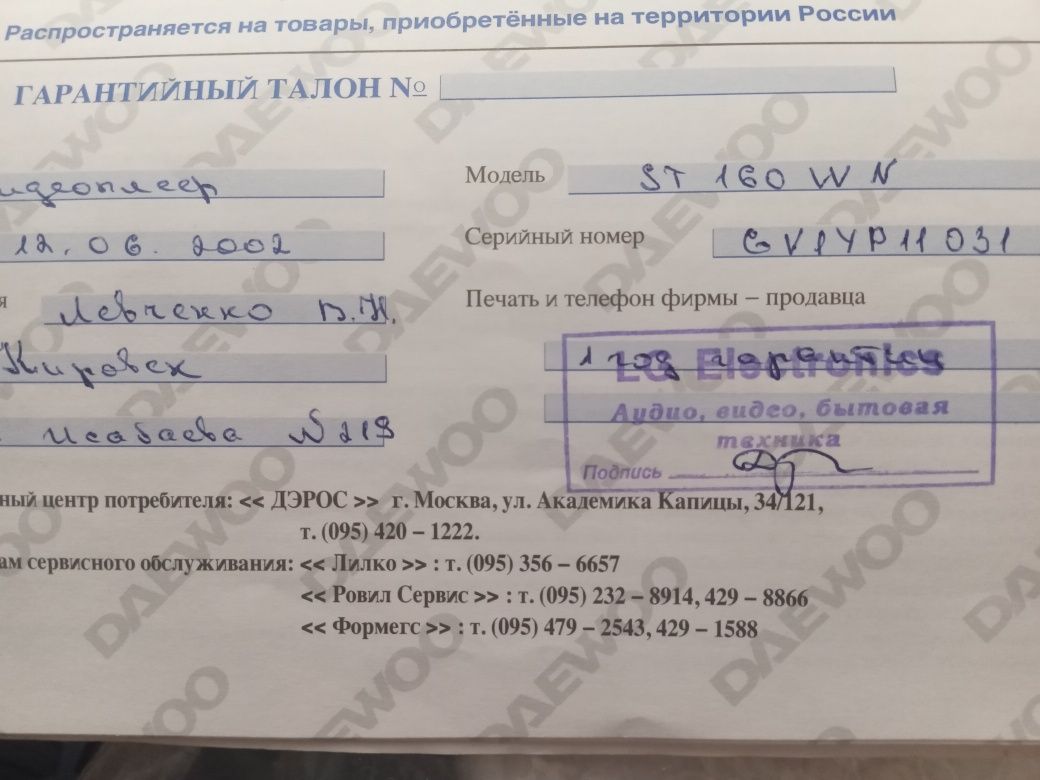 Распространяется на товары, приобретённые на территории России
ГАРАНТИЙНЫЙ ТАЛОН №
идеоплеер
Модель ST 160 WN
12.06.2002
Серийный номер GV1YP11031
я Левченко В.Н.
Печать и телефон фирмы – продавца
Кировск
1 год гарантии
LG Electronics
Аудио, видео, бытовая
техника
Исабаева №219
Подпись
ный центр потребителя: << ДЭРОС >> г. Москва, ул. Академика Капицы, 34/121,
т. (095) 420 – 1222.
ам сервисного обслуживания: << Лилко >> : т. (095) 356 – 6657
<< Ровил Сервис >> : т. (095) 232 – 8914, 429 – 8866
<< Формегс >> : т. (095) 479 – 2543, 429 – 1588
DAEWOO